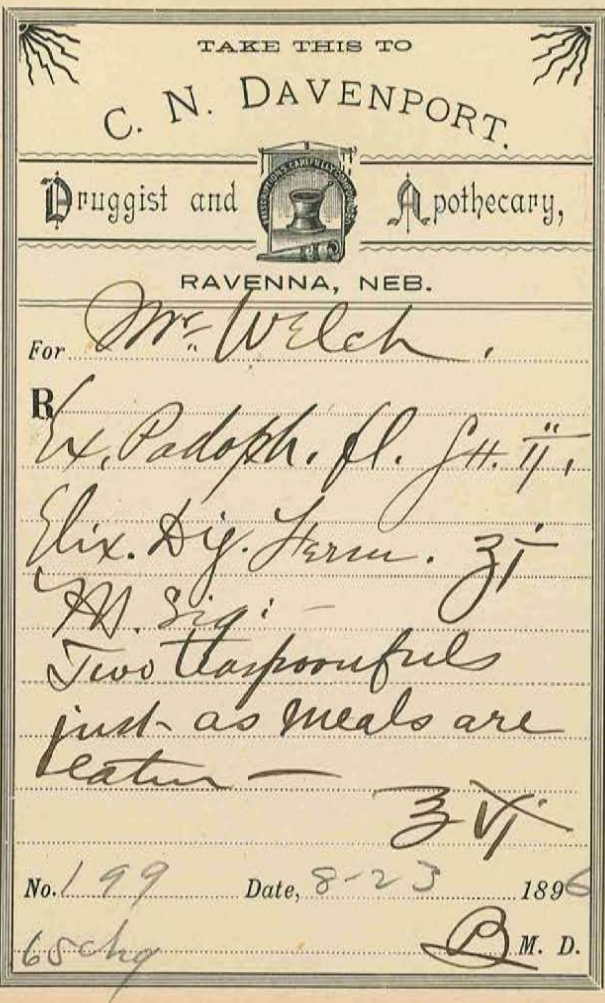 TAKE THIS TO
C. N. DAVENPORT.
Druggist and Apothecary,
PRESCRIPTIONS CAREFULLY COMPOUNDED
RAVENNA, NEB.
For Mr. Welch.
R
Ex. Padoph. fl. gtt. ii.
Elix. Dig. Ferm. ʒi
M. Sig: —
Two teaspoonfuls
just as meals are
eaten —
ʒvi
No. 199 Date, 8-23 1896
65 chg B M. D.